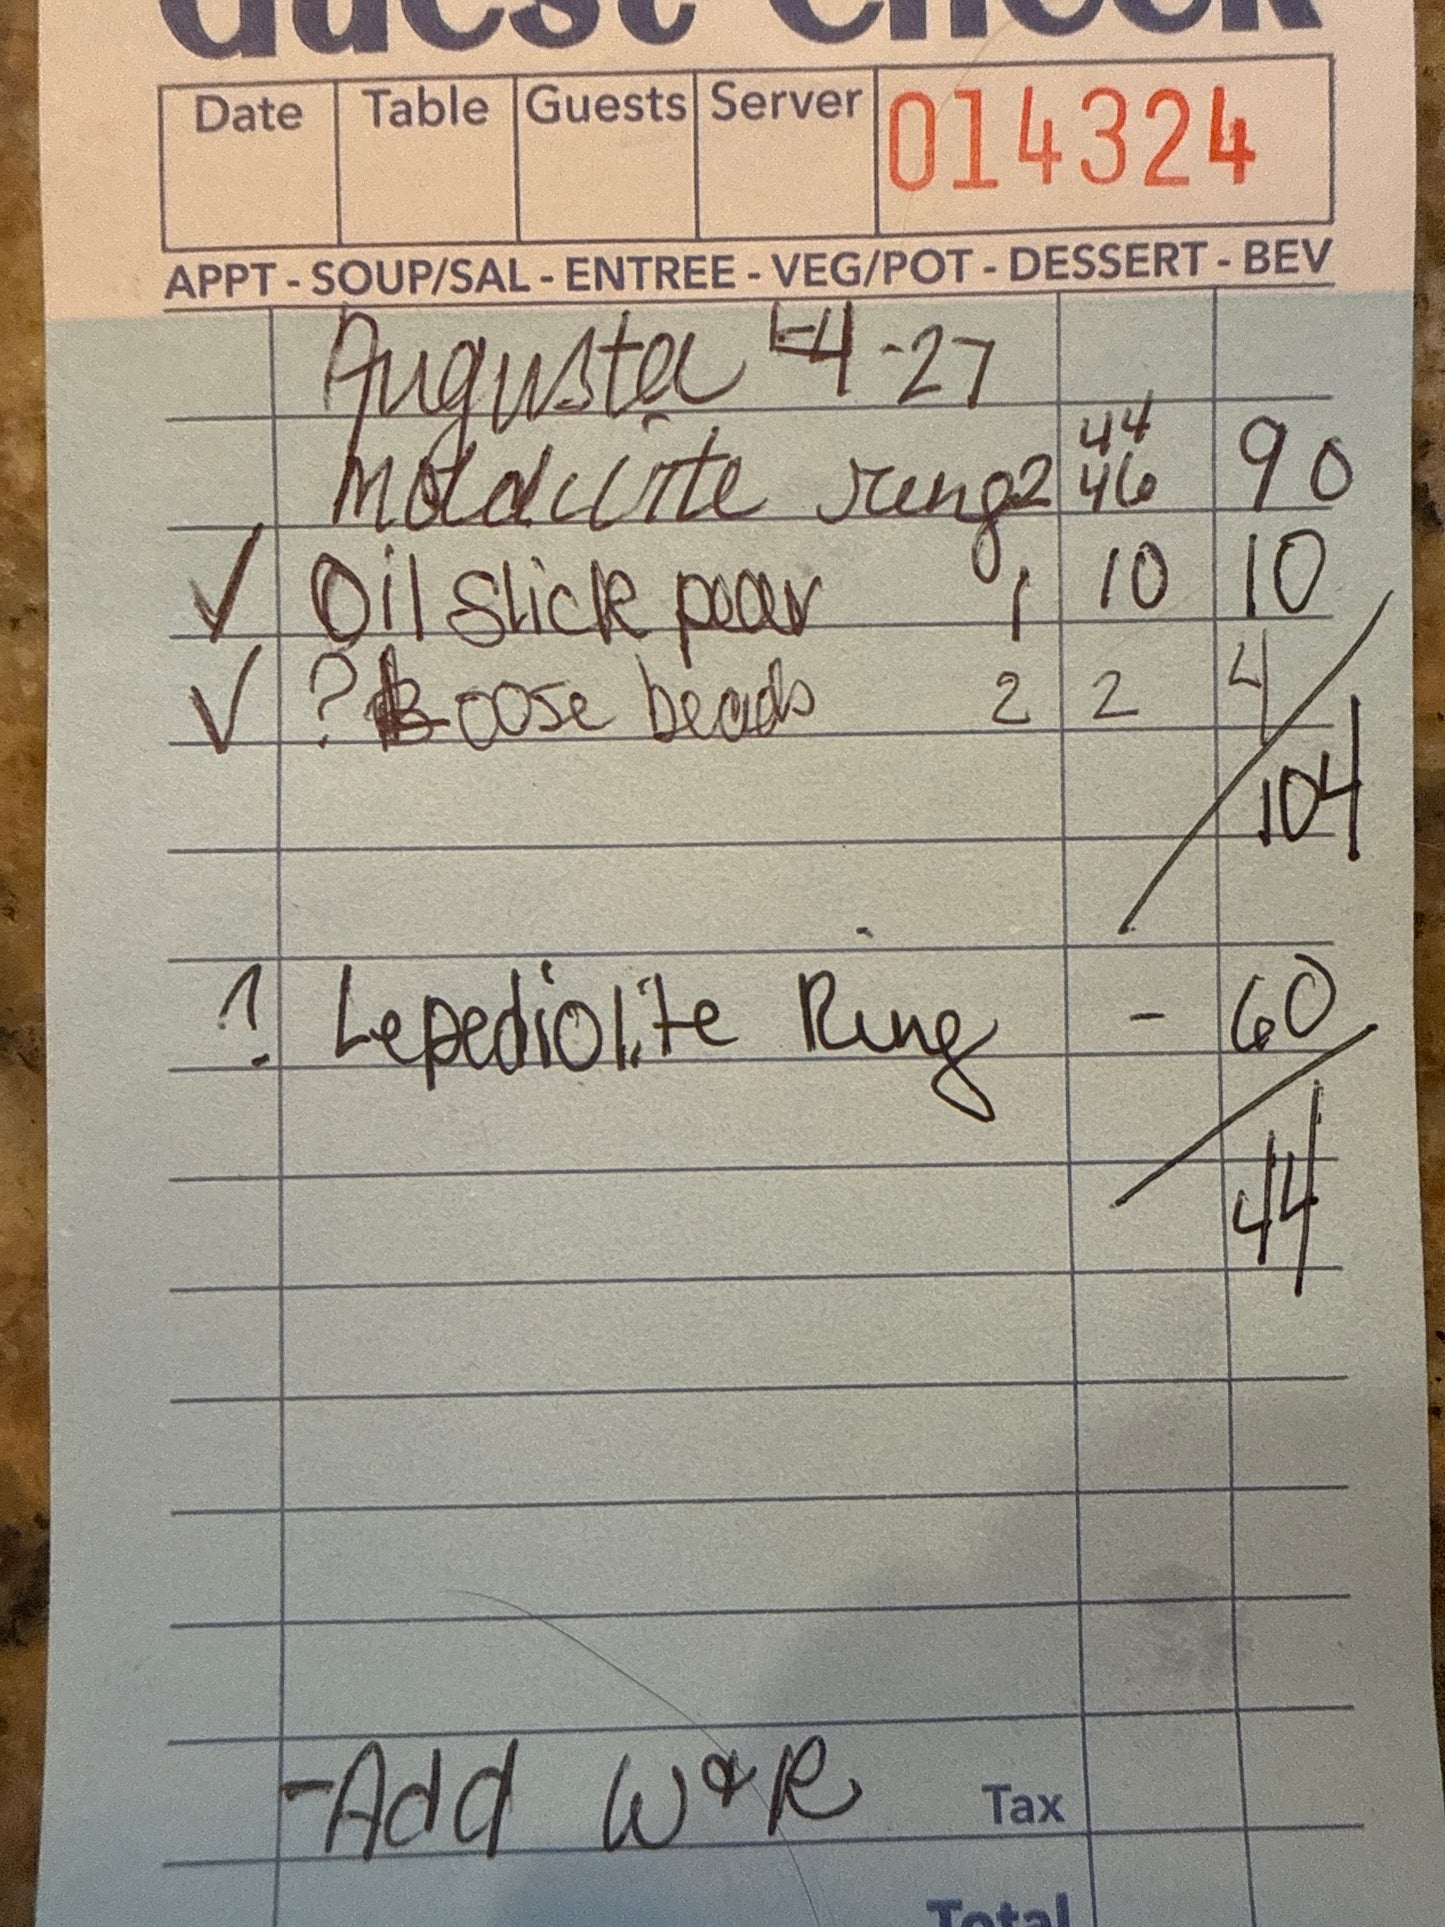 Guest Check
Date Table Guests Server 014324
APPT - SOUP/SAL - ENTREE - VEG/POT - DESSERT - BEV
Augusta 4-27
44
Moldavite ring 2 46 90
✓ Oil slick pear 1 10 10
✓ ? Loose beads 2 2 4
104
? Lepediolite Ring - 60
44
-Add W & R Tax
Total